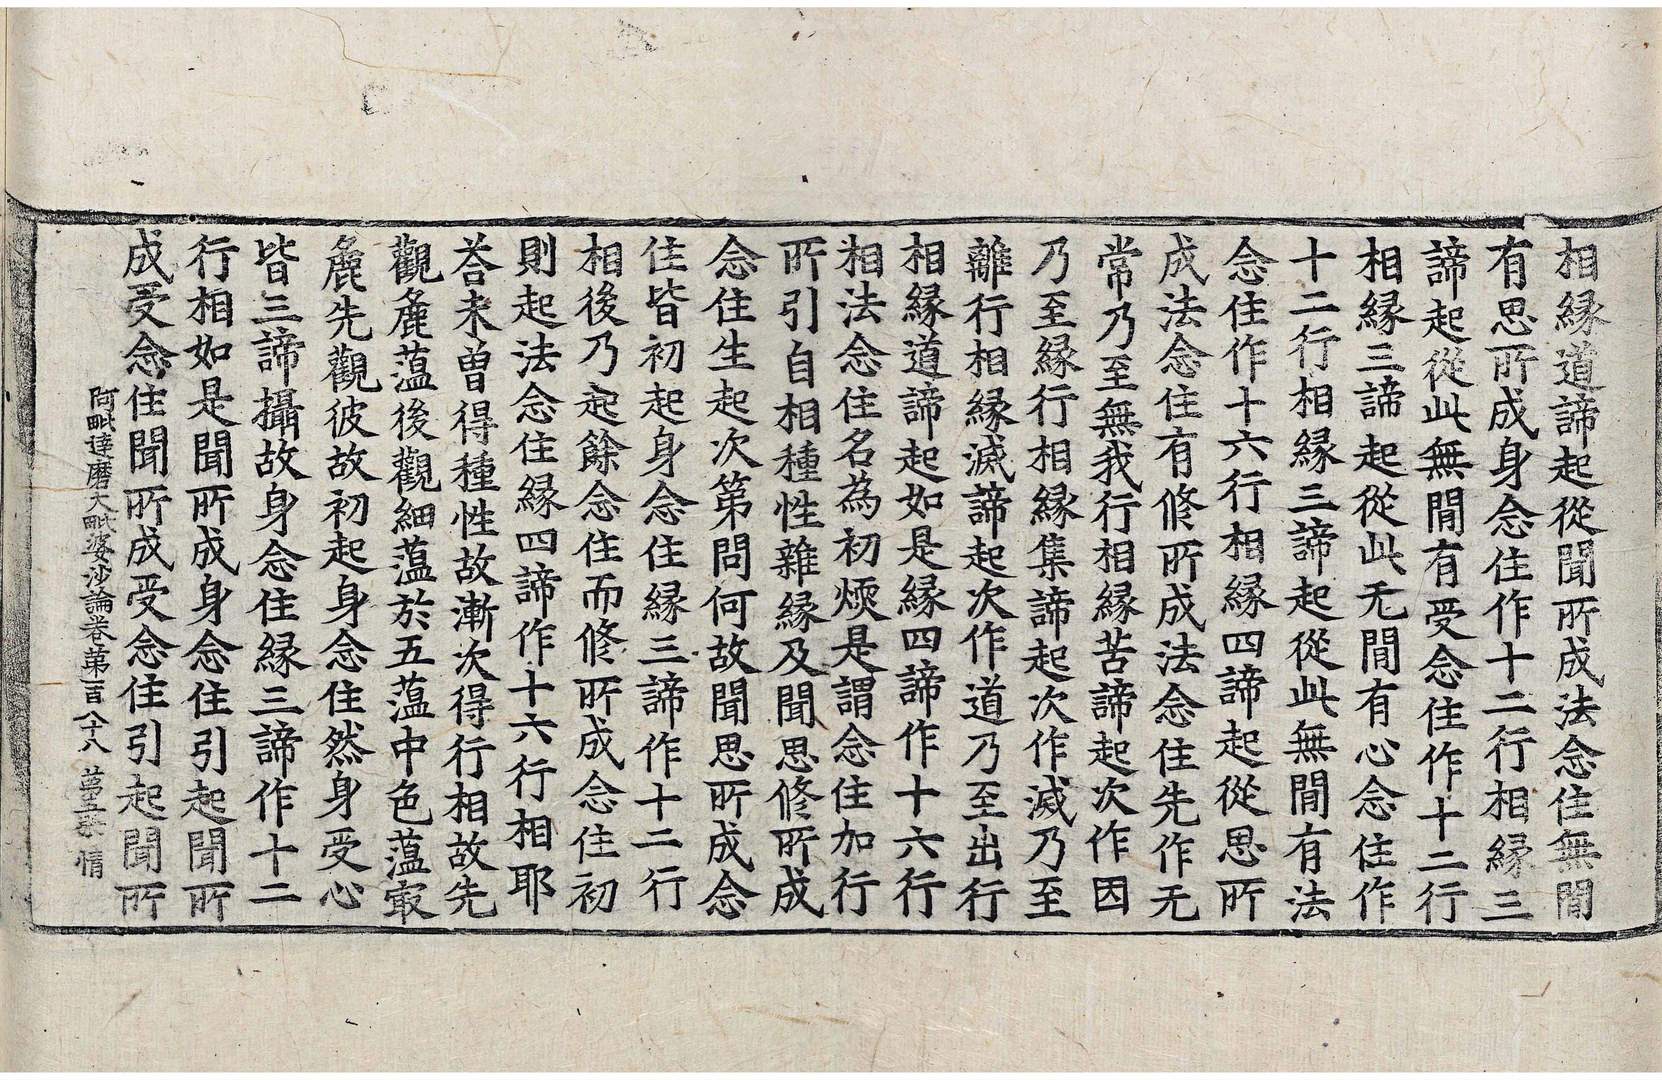 相縁道諦起從聞所成法念住無閒
有思所成身念住作十二行相縁三
諦起從此無閒有受念住作十二行
相縁三諦起從此无閒有心念住作
十二行相縁三諦起從此無閒有法
念住作十六行相縁四諦起從思所
成法念住有修所成法念住先作无
常乃至無我行相縁苦諦起次作因
乃至縁行相縁集諦起次作滅乃至
離行相縁滅諦起次作道乃至出行
相縁道諦起如是縁四諦作十六行
相法念住名為初煗是謂念住加行
所引自相種性雜縁及聞思修所成
念住生起次第問何故聞思所成念
住皆初起身念住縁三諦作十二行
相後乃起餘念住而修所成念住初
則起法念住縁四諦作十六行相耶
荅未曾得種性故漸次得行相故先
觀麁蕰後觀細蕰於五蕰中色蕰㝡
麁先觀彼故初起身念住然身受心
皆三諦攝故身念住縁三諦作十二
行相如是聞所成身念住引起聞所
成受念住聞所成受念住引起聞所
阿毗達磨大毗婆沙論卷第一百八十八 第五張 情